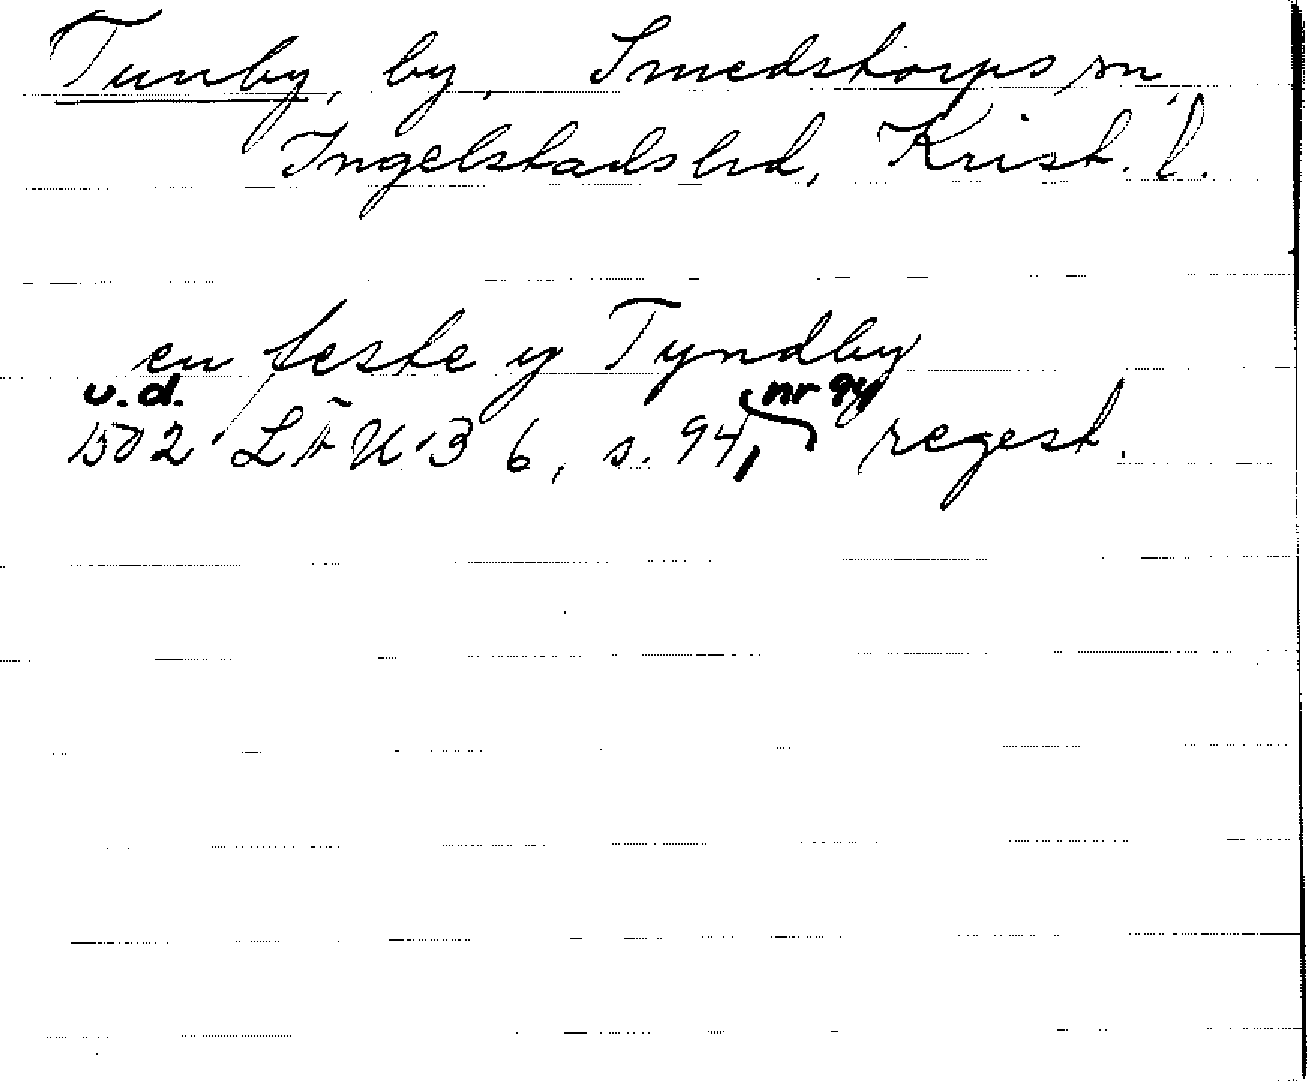 Tunby, by, Smedstorps sn,
Ingelstads hd, Krist. l.
en feste y Tyndby
u.d. nr 94
1502 LÄU 3 6, s. 94, regest.